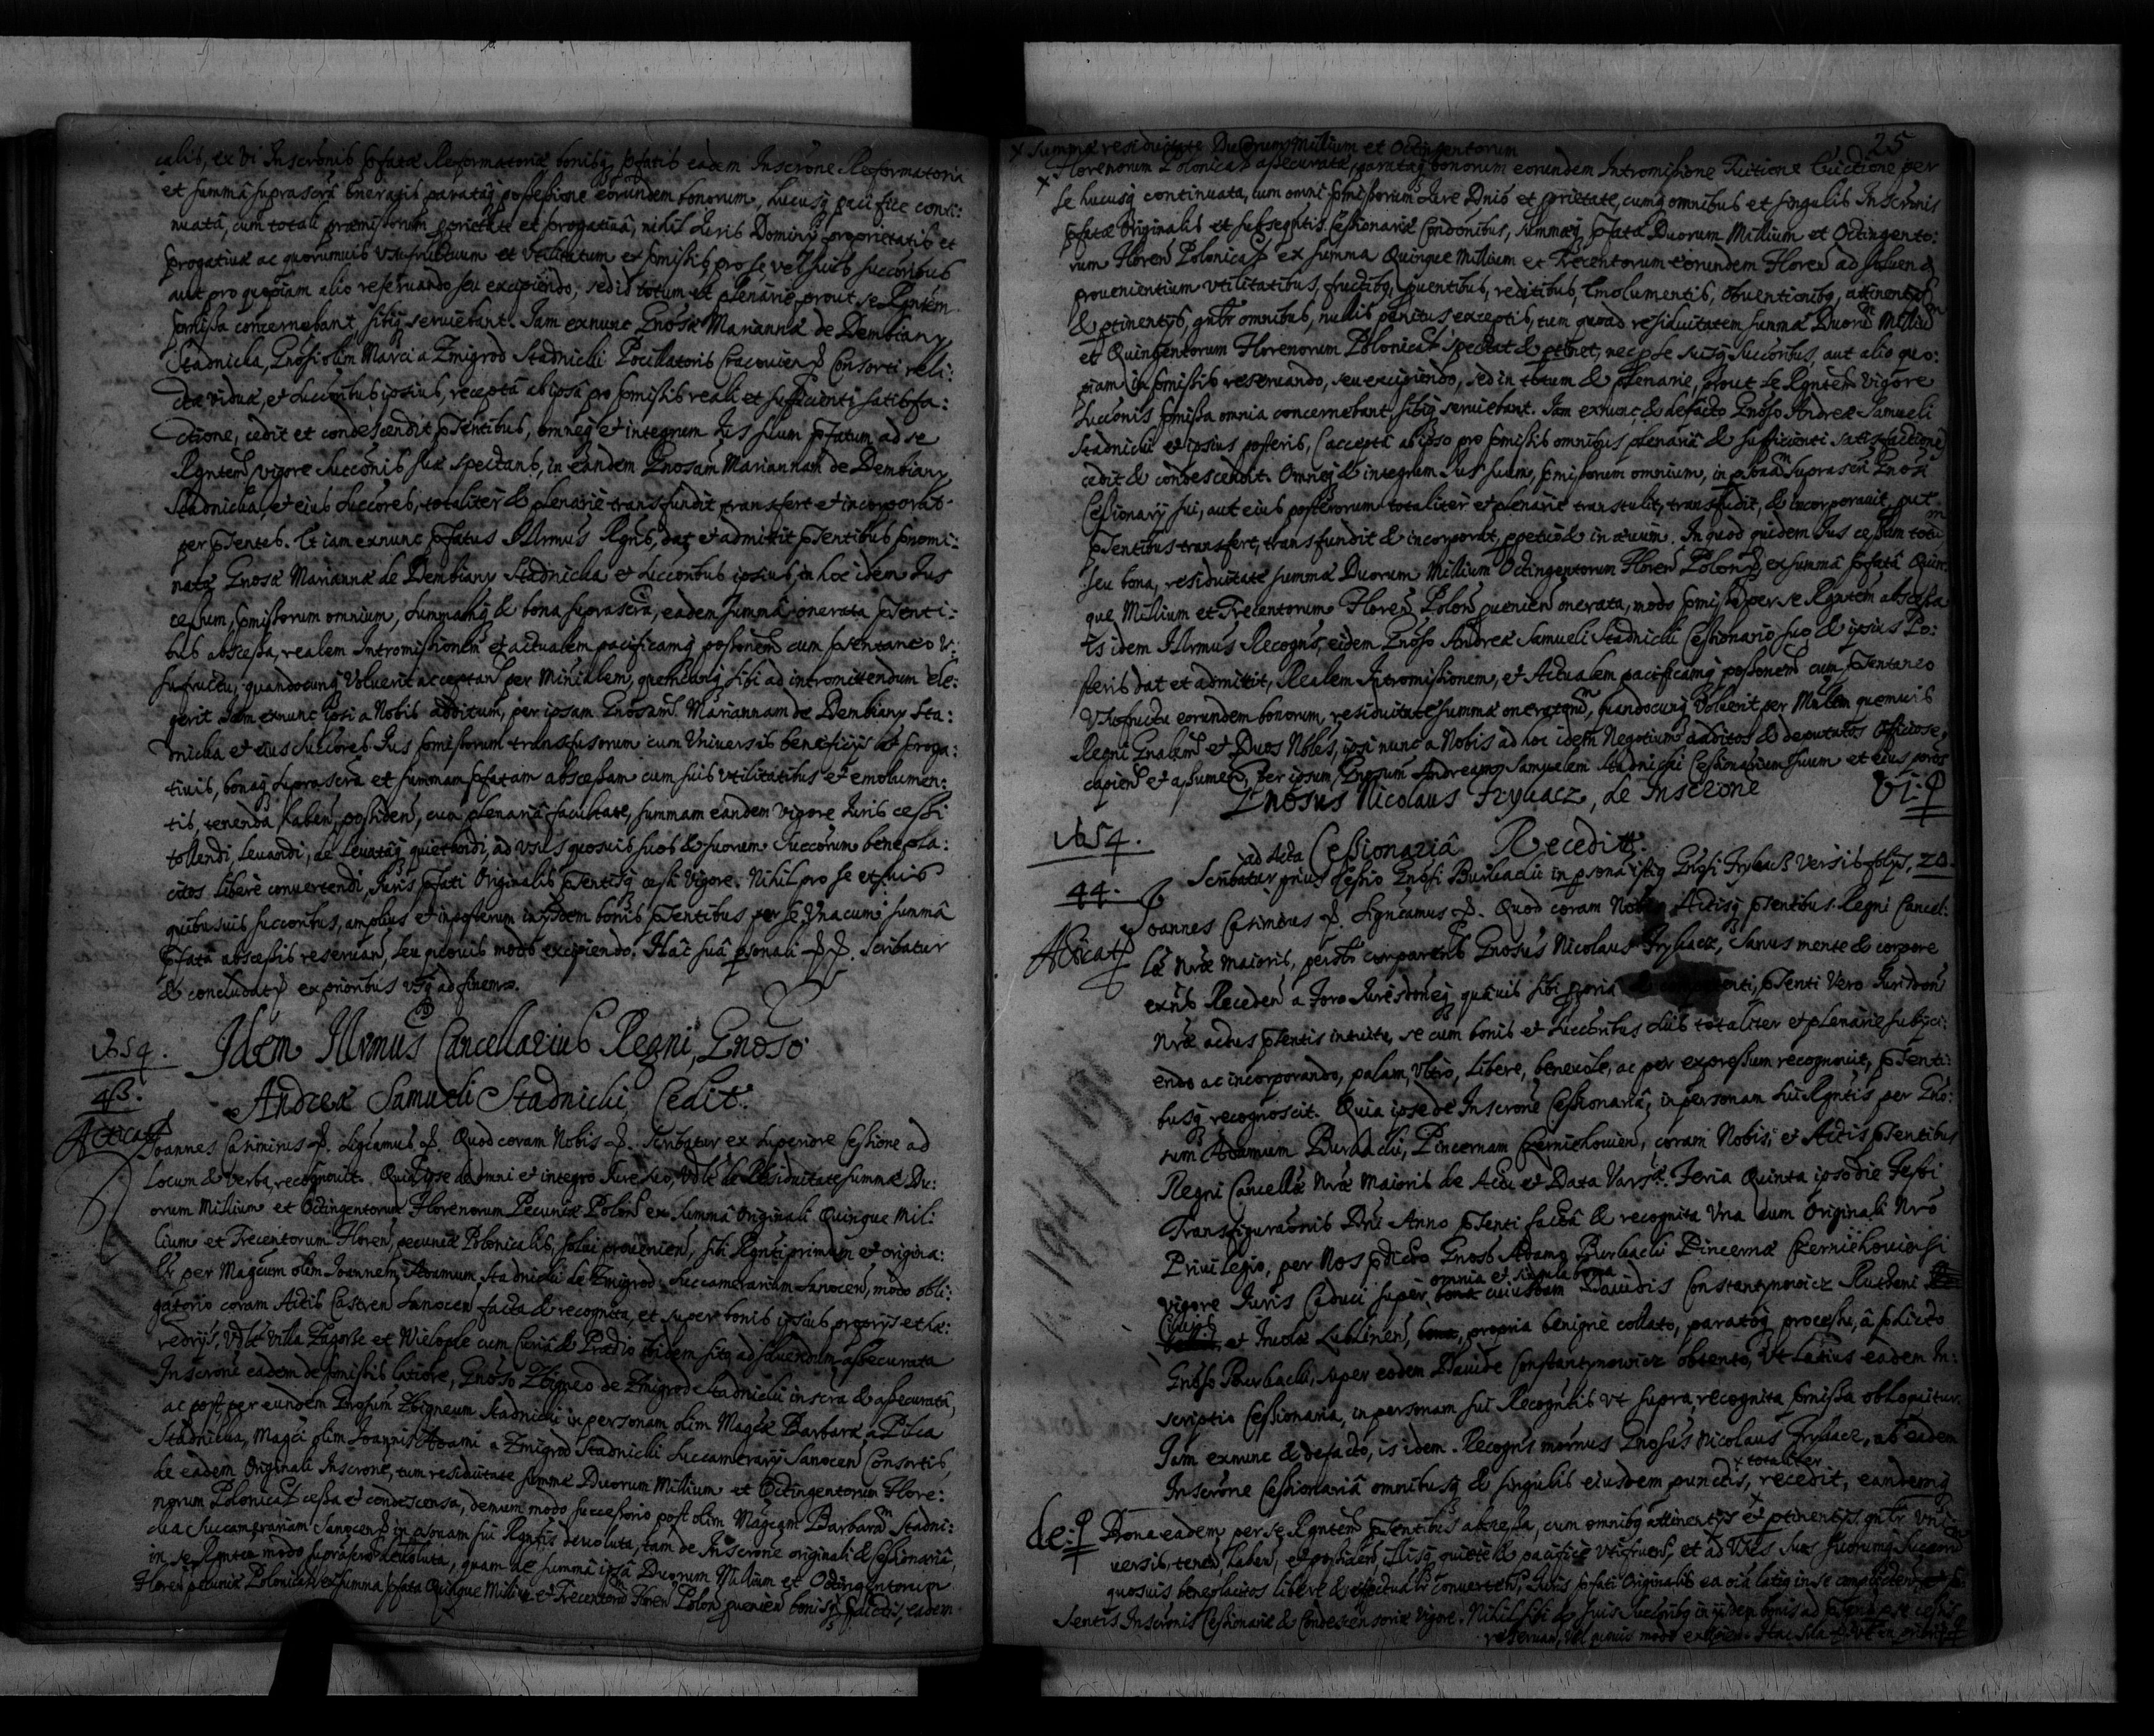 calis, ex vi Inscrōnis pfatæ Reformatoriæ bonisq pfatis eadem Inscrōne Reformatoria
et summâ suprascrā oneratis paratâq possessione eorundem bonorum, hucusq pacifice conti:
nuatâ, cum totali præmissorum pprietate et prrogativâ, nihil Iuris Dominij proprietatis et
prrogativæ ac quorumvis Vsufructuum et vtilitatum ex pmissis, pro se vel suis succōribus
aut pro quopiam alio reservando seu excipiendo, sed id totum et plenarie prout se Rgntem
pmissa concernebant, sibiq serviebant. Iam exnunc Gnōsæ Mariannæ de Dembiany
Stadnicka, Gnōsi olim Marci a Zmigrod Stadnicki Pocillatoris Cracovien Consorti reli:
ctæ viduæ, et Succōribus ipsius, receptâ ab ipsâ pro pmissis reali et sufficienti satisfa:
ctione, cedit et condescendit pntibus, omneq et integrum Ius suum pfatum ad se
Rgntem vigore Succōnis suæ spectans, in eandem Gnōsam Mariannam de Dembiany
Stadnicka, et eius Succōres, totaliter & plenarie transfundit, transfert et incorporat
per pntes. Et iam exnunc pfatus Illrmus Rgns, dat et admittit pntibus pnomi:
natæ Gnōsæ Mariannæ de Dembiany Stadnicka et Succōribus ipsius, in hoc idem Ius
cessum, pmissorum omnium, Summamq & bona suprascrā, eadem summâ onerata pnti:
bus abscessa, realem Intromissionem et actualem pacificamq possōnem cum pntaneo V:
sufructu, quandocunq Voluerit acceptan per Ministialem, quemcunq sibi ad intromittendum ele:
gerit Iam exnunc ipsi a Nobis additum, per ipsam Gnōsam Mariannam de Dembiany Sta:
dnicka et eius Succōres Ius pmissorum transfusorum cum Vniversis beneficijs et prroga:
tivis, bonaq suprascrā et summam pfatam abscessam cum suis vtilitatibus et emolumen:
tis, tenenda, haben, possiden, cum plenariâ facultate, summam eandem vigore Iuris cessi
tollendi, levandi, de levatâq quietandi, ad Vsus quosvis suos & suorum Succōrum benepla:
citos libere convertendi, Iuris pfati Originalis pntisq cessi Vigore. Nihil pro se et suis
quibusvis succōribus, amplius et in posterum in ijsdem bonis pntibus per se Vna cum summâ
pfatâ abscessis reservan, seu quovis modo excipiendo. Hac suâ psonali &. &. Scribatur
& concludat ex prioribus vsq ad finem.
1654.
Idem Illrmus Cancellarius Regni, Gnōso
43.
Andreæ Samueli Stadnicki Cedit.
Ioannes Casimirus &. Signcamus &. Quod coram Nobis &. Scribatur ex Superiore Cessione ad
Locum & verba, recognovit. Quia ipse de omni et integro Iure suo, Vdlt de Residuitate summæ Du:
orum Millium et Octingentorum Florenorum Pecuniæ Polon ex Summâ Originali Quinque Mil:
lium et Trecentorum Floren, pecuniæ Polonicalis, solui provenien, sibi Rgnti primum et origina:
lr per Magcum olim Ioannem Adamum Stadnicki de Zmigrod Succamerarium Sanocen, modo obli:
gatorio coram Actis Castren Sanocen facta & recognita, et super bonis ipsius proprijs et hæ:
reditrijs, Vdlt Villa Zagorze et Wielopole cum Curia & Prædio ibidem sito ad solvendum assecurata
Inscrōne eadem de pmissis latiore, Gnōso Zbigneo de Zmigrod Stadnicki inscra & assecurata,
ac post per eundem Gnōsum Zbigneum Stadnicki in personam olim Magcæ Barbaræ a Pilca
Stadnicka, Magci olim Ioannis Adami a Zmigrod Stadnicki Succamerarij Sanocen Consortis,
de eadem Originali Inscrōne, tum residuitate summæ Duorum Millium et Octingentorum Flore:
norum Polonical cessa et condescensa, demum modo successorio post olim Magcam Barbaram Stadni:
cka Succamerariam Sanocen in psonam sui Rgntis devoluta, tam de Inscrōne originali & Cessionariâ,
in se Rgntem modo suprascro devoluta, quam de summâ ipsâ Duorum Millium et Octingentorum
Floren pecuniæ Polonical ex summa pfata Quinque Millium et Trecentorum Floren Polon provenien bonisq pdictis, eadem
25
x Summæ residuitate Duorum Millium et Octingentorum
x Florenorum Polonical assecuratæ, paratâq bonorum eorundem Intromissione Tuitione Evictione per
se hucusq continuata, cum omni pmissorum Iure Dnio et pprietate, cumq omnibus et singulis Inscrōnis
pfatæ Originalis et subseqntis Cessionariæ Condōnibus, summæq pfatæ Duorum Millium et Octingento:
rum Floren Polonical ex summa Quinque Millium et Trecentorum eorundem Floren ad solven
provenientium vtilitatibus, fructibq, pventibus, reditibus, Emolumentis, obventionibq, attinentijs
& ptinentijs, gnlr omnibus, nullis penitus exceptis, tum quoad residuitatem summæ Duoru Milliu
et Quingentorum Florenorum Polonical spectat & ptinet, nec pro se suisq succōribus, aut alio quo:
piam in pmissis reservando, seu excipiendo, sed in totum & plenarie, prout se Rgntem Vigore
Succōnis pmissa omnia concernebant, sibiq serviebant. Iam exnunc & defacto Gnōso Andreæ Samueli
Stadnicki et ipsius posteris, (acceptâ ab ipso pro pmissis omnibus plenariâ & sufficienti satisfactione)
cedit & condescendit. Omneq & integrum Ius suum, pmissorum omnium, in psōnam suprascri Gnōsi
Cessionarij sui, aut eius posterorum totaliter et plenarie transtulit, transfudit, & incorporavit, put
pntibus transfert, transfundit & incorporat, ppetuo & in ævum. In quod quidem Ius cessum totu
seu bona, residuitate summæ Duorum Millium Octingentorum Floren Polon ex summâ pfatâ Quin:
que Millium et Trecentorum Floren Polon pvenien onerata, modo pmisso per se Rgntem abscessa
Is idem Illrmus Recogns, eidem Gnōso Andreæ Samueli Stadnicki Cessionario suo & ipsius Po:
steris dat et admittit, Realem Intromissionem, et Actualem pacificamq possōnem cum pntaneo
Vsufructu eorundem bonorum, residuitate summæ oneratorum, quandocunq Voluerit per Mnlem quemvis
Regni Gnalem et Duos Nobles, ipsi nunc a Nobis ad hoc idem Negotium additos & deputatos Officiose,
capien et assumen, per ipsum Gnōsum Andream Samuelem Stadnicki Cessionarium suum et eius poros
Gnōsus Nicolaus Frykacz, de Inscrōne
Vi:
1654.
ad Acta Cessionariâ Recedit.
44.
Scribatur prius Cessio Gnōsi Burbacki in psonâ istiq Gnōsi Frykacz versis folijs, 20.
Ioannes Casimirus &. Signcamus &. Quod coram Nobis Actisq pntibus Regni Cancel:
læ Nræ Maioris, psōnlr comparens Gnōsus Nicolaus Frykacz, Sanus mente & corpore
exns Receden a foro Iurisdōneq quavis sibi ppria pnti Vero Iurisdōni
Nræ actus pntis intuitu, se cum bonis et Succōribus suis totaliter et plenarie subijci:
endo ac incorporando, palam, Vltro, libere, benevole, ac per expressum recognovit, pnti:
busq recognoscit. Quia ipse de Inscrōne Cessionariâ, in personam sui Rgntis per Gnō:
sum Adamum Burbacki, Pincernam Czerniehovien, coram Nobis, et Actis pntibus
Regni Cancellæ Nræ Maioris de Actu et Data Varsæ. Feria Quinta ipso die Festi
Transfiguraōnis Dni Anno pnti factâ & recognita Vna cum Originali Nro
Privilegio, per Nos pdicto Gnōso Adamo Burbacki Pincernæ Czerniehoviensi
omnia et singula bona
vigore Iuris Caduci super, bona cuiusdam Davidis Constantynowicz Rutheni
Civis
et Incolæ Lublinen, bona, propria benigne collato, paratoq processu, â pdicto
Gnōso Burbacki, super eodem Davide Constantynowicz obtento, Vt Latius eadem In:
scriptio Cessionaria, in personam sui Recogntis vt supra recognita pmissa obloquitur.
Iam exnunc & defacto, is idem Recogns Gnōsus Nicolaus Frykacz, ab eadem
x totaliter
Inscrōne Cessionariâ omnibusq & singulis eiusdem punctis, recedit, eandemq
de:
Bona eadem per se Rgntem pntibus abscessa, cum omnibq attinentijs et ptinentijs gnlr Vni
versis, tenen, haben, et possiden, illisq quiete & pacifice vtifruen, et ad Vsus suos suorumq Succōru
quosvis beneplacitos libere & effectualr converten, Iuris pfati Originalis ea oia latiq in se complecten
sentis Inscrōnis Cessionariæ & Condescensoriæ vigore. Nihil sibi & suis Succōribq in ijsdem bonis ad
reservan, Vel quovis modo excipien. Hac sua